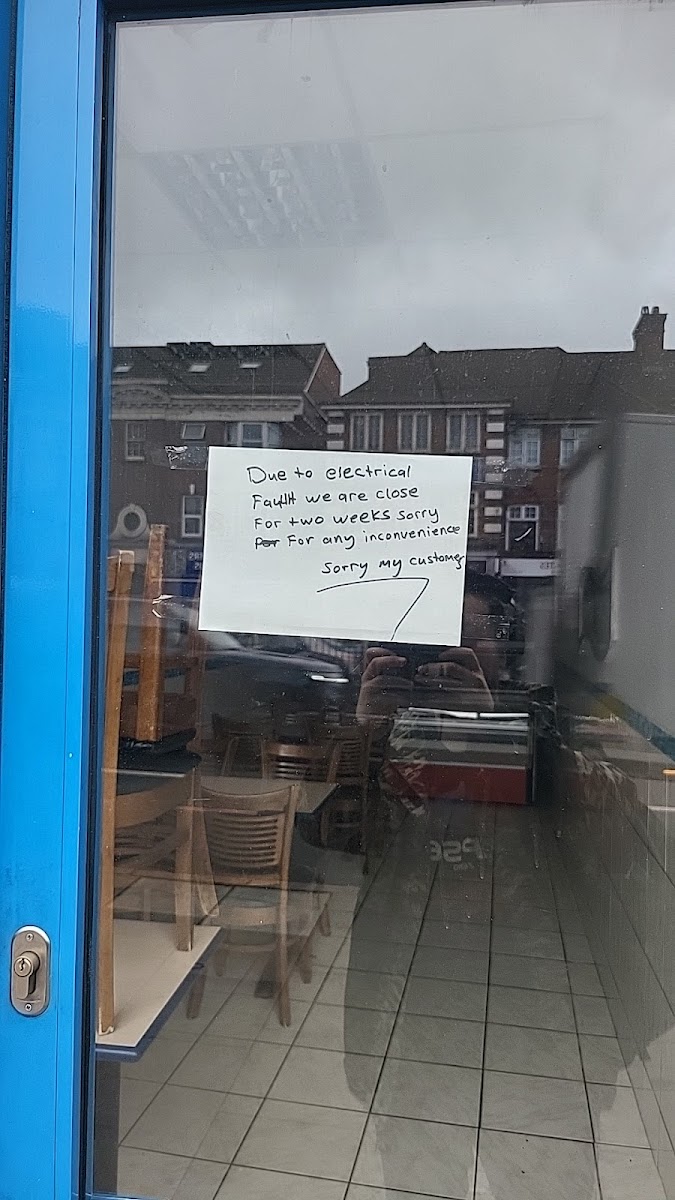 Due to electrical
Fault we are close
For two weeks sorry
For For any inconvenience
Sorry my customer